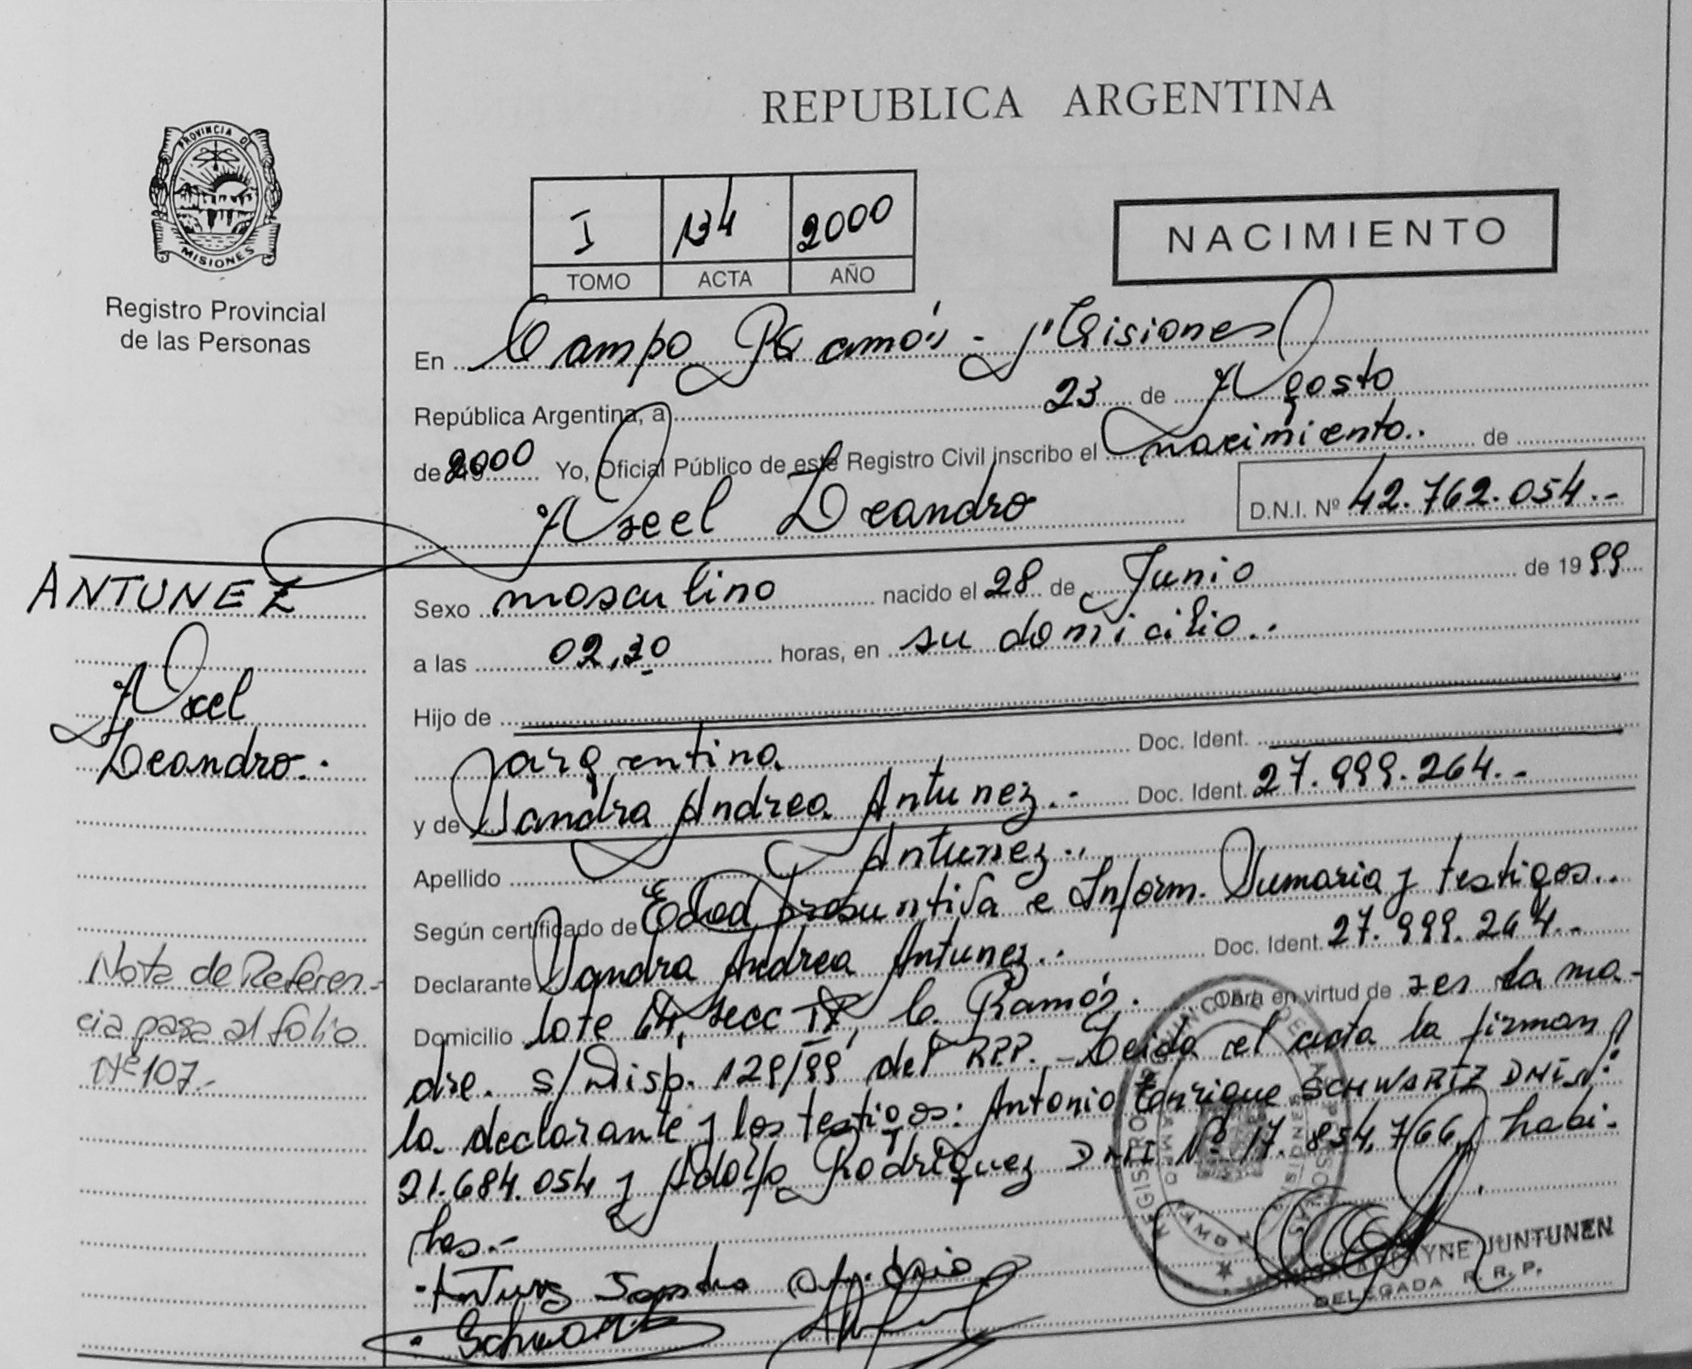 REPUBLICA ARGENTINA
PROVINCIA DE
MISIONES
Registro Provincial
de las Personas
I 134 2000
TOMO ACTA AÑO
NACIMIENTO
En Campo Ramón - Misiones
República Argentina, a 23 de Agosto
de 2000 Yo, Oficial Público de este Registro Civil inscribo el nacimiento.. de
Axel Leandro D.N.I. Nº 42.762.054.-
ANTUNEZ
Axel
Leandro.-
Sexo masculino nacido el 28 de Junio de 1999
a las 02,30 horas, en su domicilio..
Hijo de
Doc. Ident.
argentina
y de Sandra Andrea Antunez.- Doc. Ident. 27.999.264.-
Apellido Antunez..
Según certificado de Edad presuntiva e Inform. Sumaria y testigos..
Declarante Sandra Andrea Antunez.. Doc. Ident. 27.999.264.-
Domicilio lote 64, secc IV, C. Ramón. Obra en virtud de ser la ma-
dre. s/Disp. 129/99 del RPP. - Leida el acta la firman
la declarante y los testigos: Antonio Enrique SCHWARTZ DNI Nº:
21.684.054 y Adolfo Rodriguez DNI Nº 17.854.766, habi-
les.-
Nota de Referen-
cia pasa al folio
Nº 107.-
JUNTUNEN
DELEGADA R. R. P.